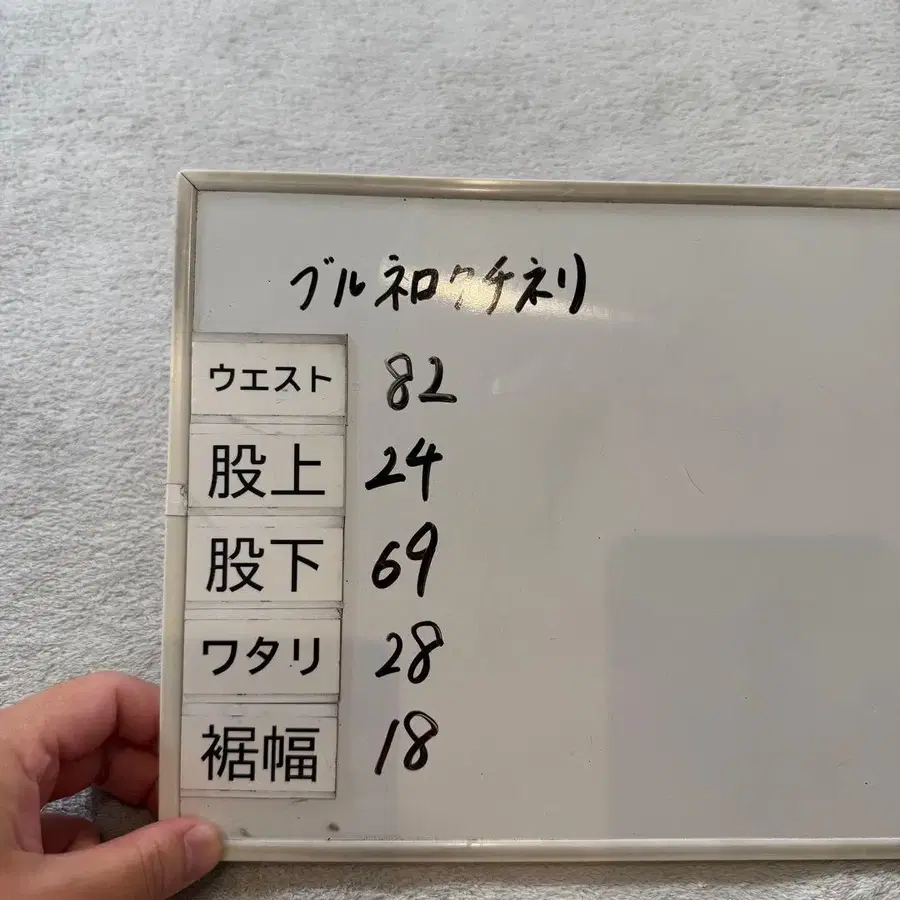 ブルネロクチネリ
ウエスト 82
股上 24
股下 69
ワタリ 28
裾幅 18